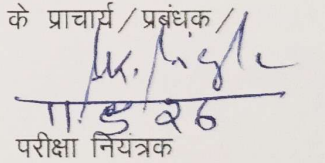 के प्राचार्य / प्रबंधक /
11.5 26
परीक्षा नियंत्रक